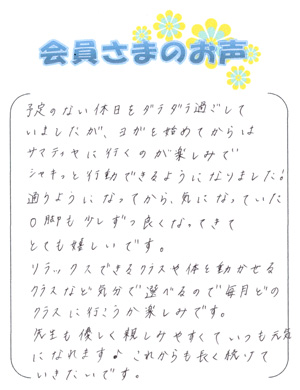 会員さまのお声
予定のない休日をダラダラ過ごして
いましたが、ヨガを始めてからは
サマディヤに行くのが楽しみで
シャキッと行動できるようになりました!
通うようになってから、気になっていた
O脚も少しずつ良くなってきて
とても嬉しいです。
リラックスできるクラスや体を動かせる
クラスなど気分で選べるので毎月どの
クラスに行こうか楽しみです。
先生も優しく親しみやすくていつも元気
になれます♪これからも長く続けて
いきたいです。